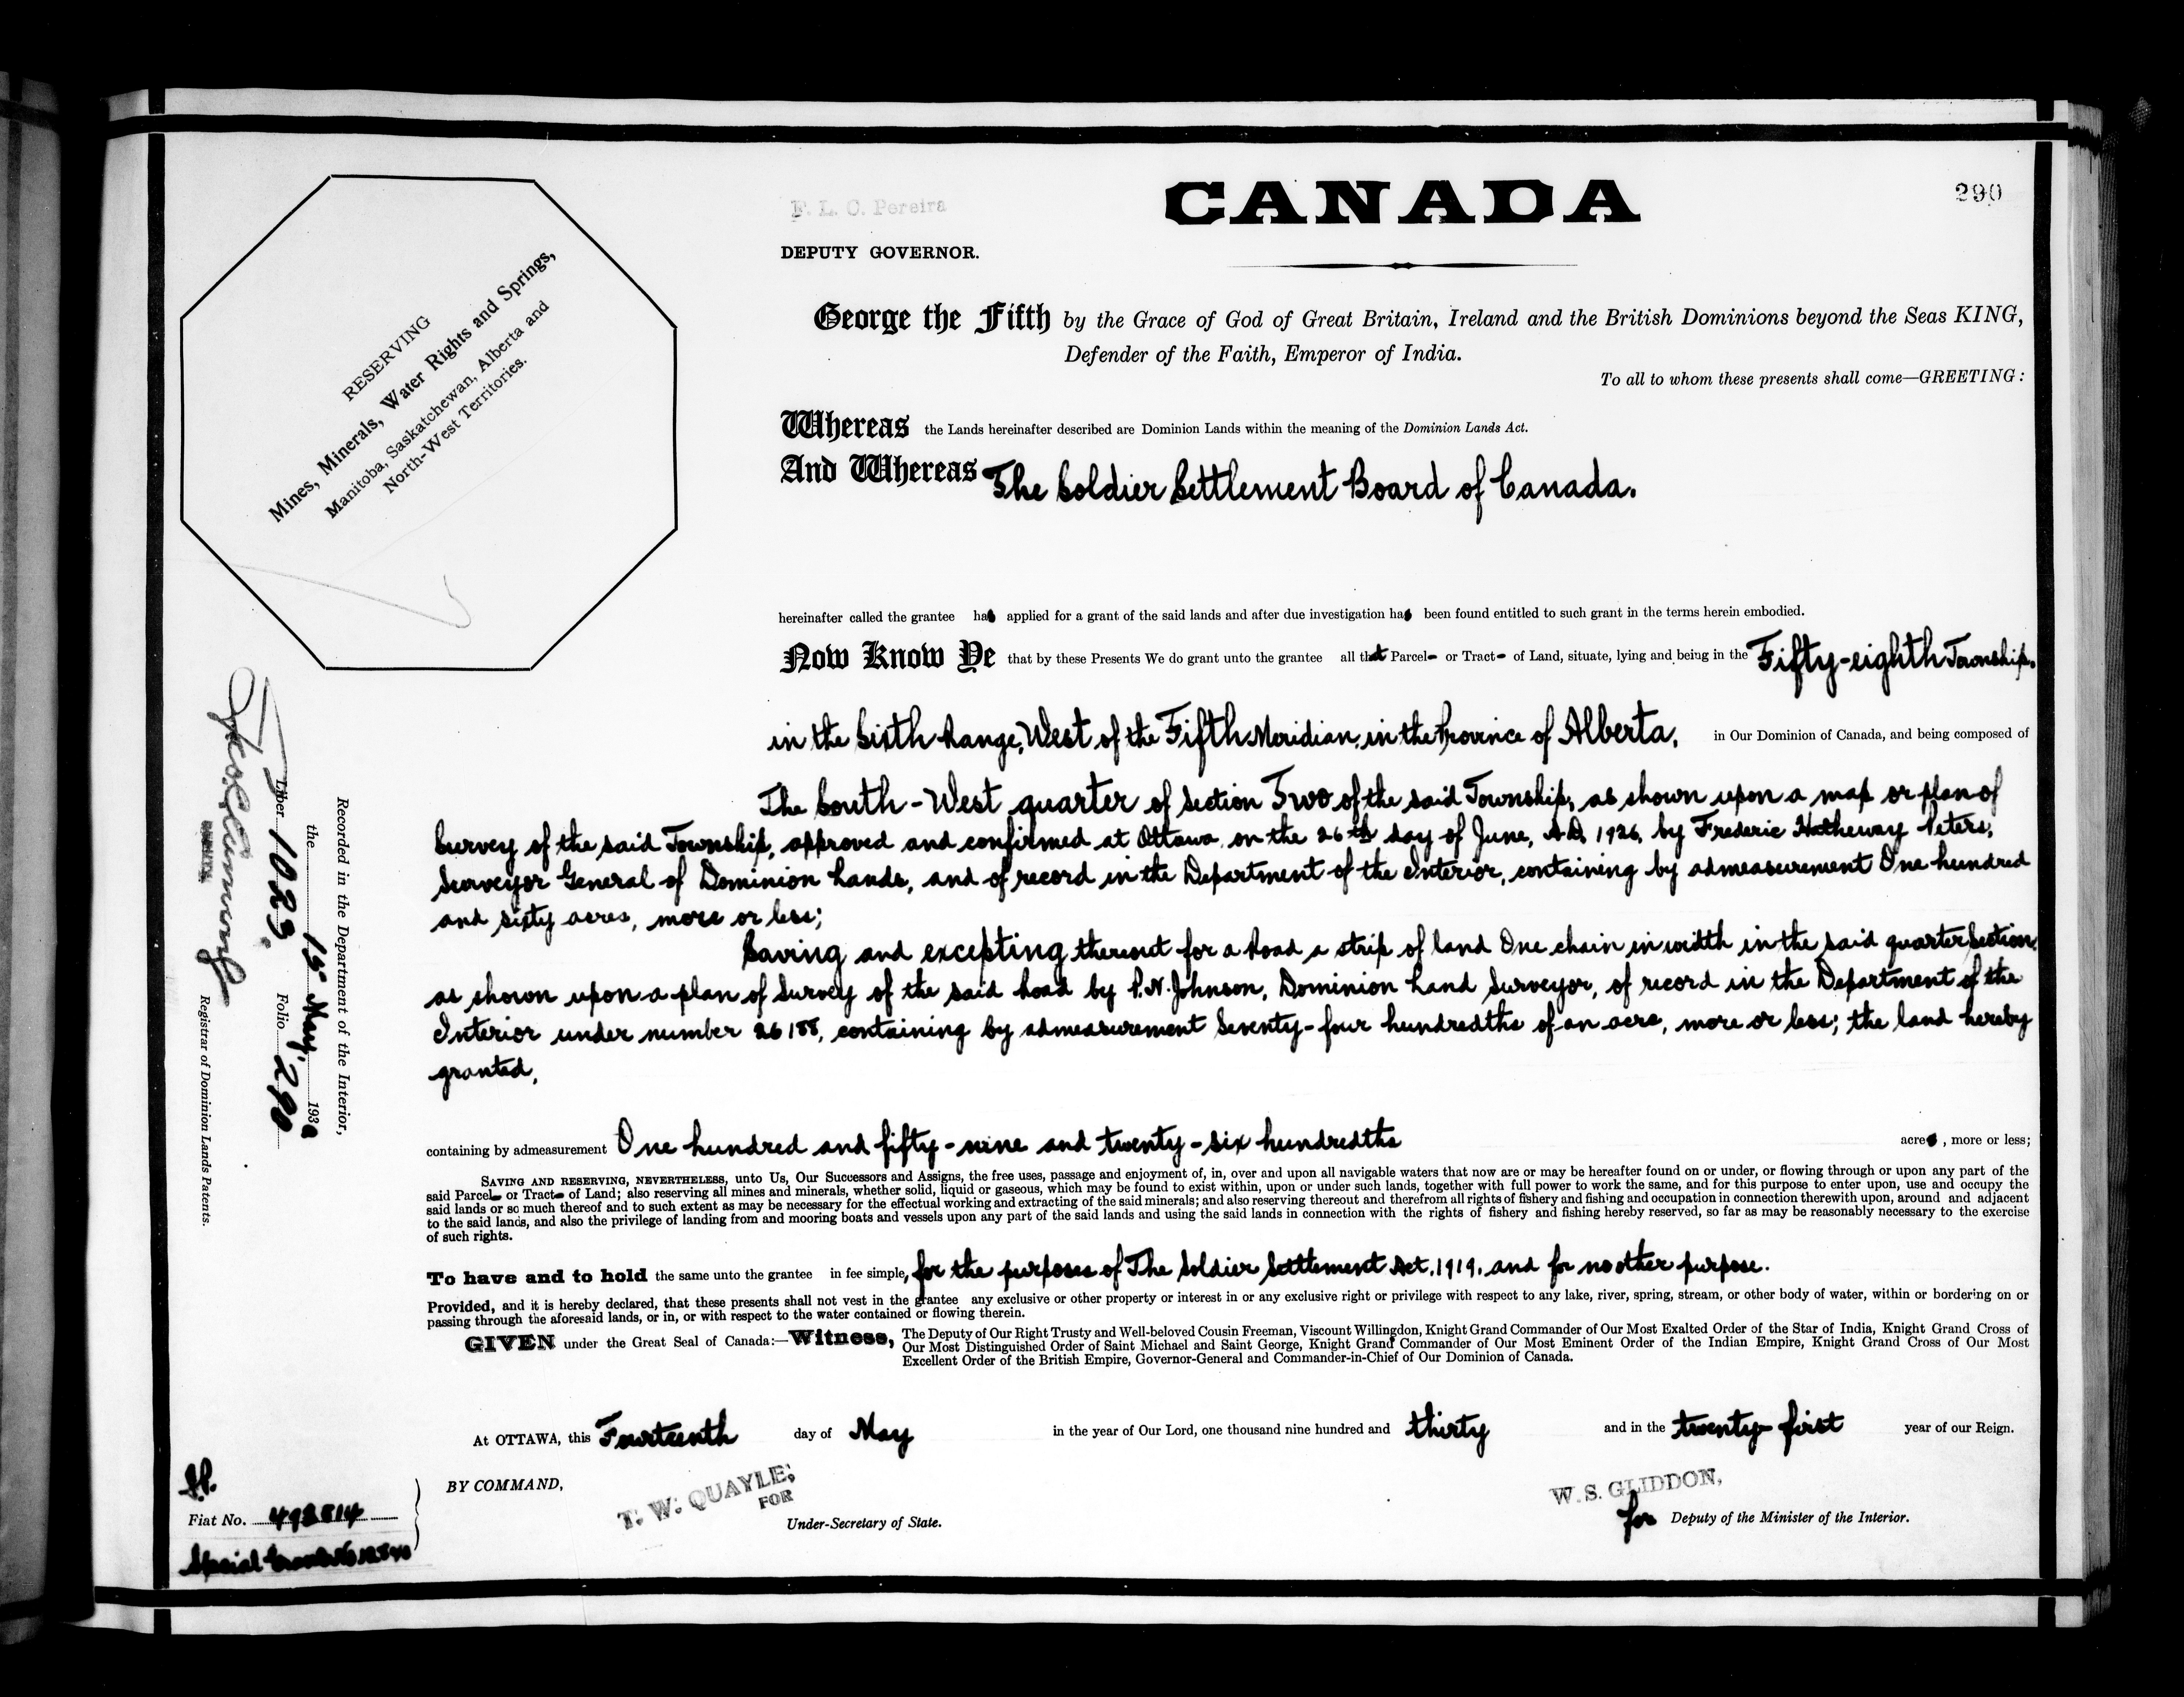 290
F. L. C. Pereira
CANADA
DEPUTY GOVERNOR.
RESERVING
Mines, Minerals, Water Rights and Springs,
Manitoba, Saskatchewan, Alberta and
North-West Territories.
George the Fifth by the Grace of God of Great Britain, Ireland and the British Dominions beyond the Seas KING,
Defender of the Faith, Emperor of India.
To all to whom these presents shall come—GREETING:
Whereas the Lands hereinafter described are Dominion Lands within the meaning of the Dominion Lands Act.
And Whereas The Soldier Settlement Board of Canada.
hereinafter called the grantee has applied for a grant of the said lands and after due investigation has been found entitled to such grant in the terms herein embodied.
Now Know Ye that by these Presents We do grant unto the grantee all that Parcel or Tract of Land, situate, lying and being in the Fifty-eighth Township,
in the Sixth Range, West of the Fifth Meridian, in the Province of Alberta, in Our Dominion of Canada, and being composed of
The South-West quarter of Section Two of the said Township, as shown upon a map or plan of
Survey of the said Township, approved and confirmed at Ottawa, on the 26th day of June, A.D. 1926, by Frederic Hatheway Peters,
Surveyor General of Dominion Lands, and of record in the Department of the Interior, containing by admeasurement One hundred
and sixty acres, more or less;
Saving and excepting thereout for a Road a strip of land One chain in width in the said quarter Section,
as shown upon a plan of Survey of the said Road by P.N. Johnson, Dominion Land Surveyor, of record in the Department of the
Interior under number 26188, containing by admeasurement Seventy-four hundredths of an acre, more or less; the land hereby
granted,
containing by admeasurement One hundred and fifty-nine and twenty-six hundredths acres, more or less;
SAVING AND RESERVING, NEVERTHELESS, unto Us, Our Successors and Assigns, the free uses, passage and enjoyment of, in, over and upon all navigable waters that now are or may be hereafter found on or under, or flowing through or upon any part of the
said Parcel or Tract of Land; also reserving all mines and minerals, whether solid, liquid or gaseous, which may be found to exist within, upon or under such lands, together with full power to work the same, and for this purpose to enter upon, use and occupy the
said lands or so much thereof and to such extent as may be necessary for the effectual working and extracting of the said minerals; and also reserving thereout and therefrom all rights of fishery and fishing and occupation in connection therewith upon, around and adjacent
to the said lands, and also the privilege of landing from and mooring boats and vessels upon any part of the said lands and using the said lands in connection with the rights of fishery and fishing hereby reserved, so far as may be reasonably necessary to the exercise
of such rights.
To have and to hold the same unto the grantee in fee simple, for the purposes of The Soldier Settlement Act, 1919, and for no other purpose.
Provided, and it is hereby declared, that these presents shall not vest in the grantee any exclusive or other property or interest in or any exclusive right or privilege with respect to any lake, river, spring, stream, or other body of water, within or bordering on or
passing through the aforesaid lands, or in, or with respect to the water contained or flowing therein.
GIVEN under the Great Seal of Canada:—Witness, The Deputy of Our Right Trusty and Well-beloved Cousin Freeman, Viscount Willingdon, Knight Grand Commander of Our Most Exalted Order of the Star of India, Knight Grand Cross of
Our Most Distinguished Order of Saint Michael and Saint George, Knight Grand Commander of Our Most Eminent Order of the Indian Empire, Knight Grand Cross of Our Most
Excellent Order of the British Empire, Governor-General and Commander-in-Chief of Our Dominion of Canada.
At OTTAWA, this Fourteenth day of May in the year of Our Lord, one thousand nine hundred and thirty and in the twenty-first year of our Reign.
BY COMMAND,
T. W. QUAYLE,
FOR
Under-Secretary of State.
W. S. GLIDDON,
for Deputy of the Minister of the Interior.
Recorded in the Department of the Interior,
the 15 May, 1930
Liber 1023. Folio 290
Registrar of Dominion Lands Patents.
Fiat No. 498814
Special Grant No